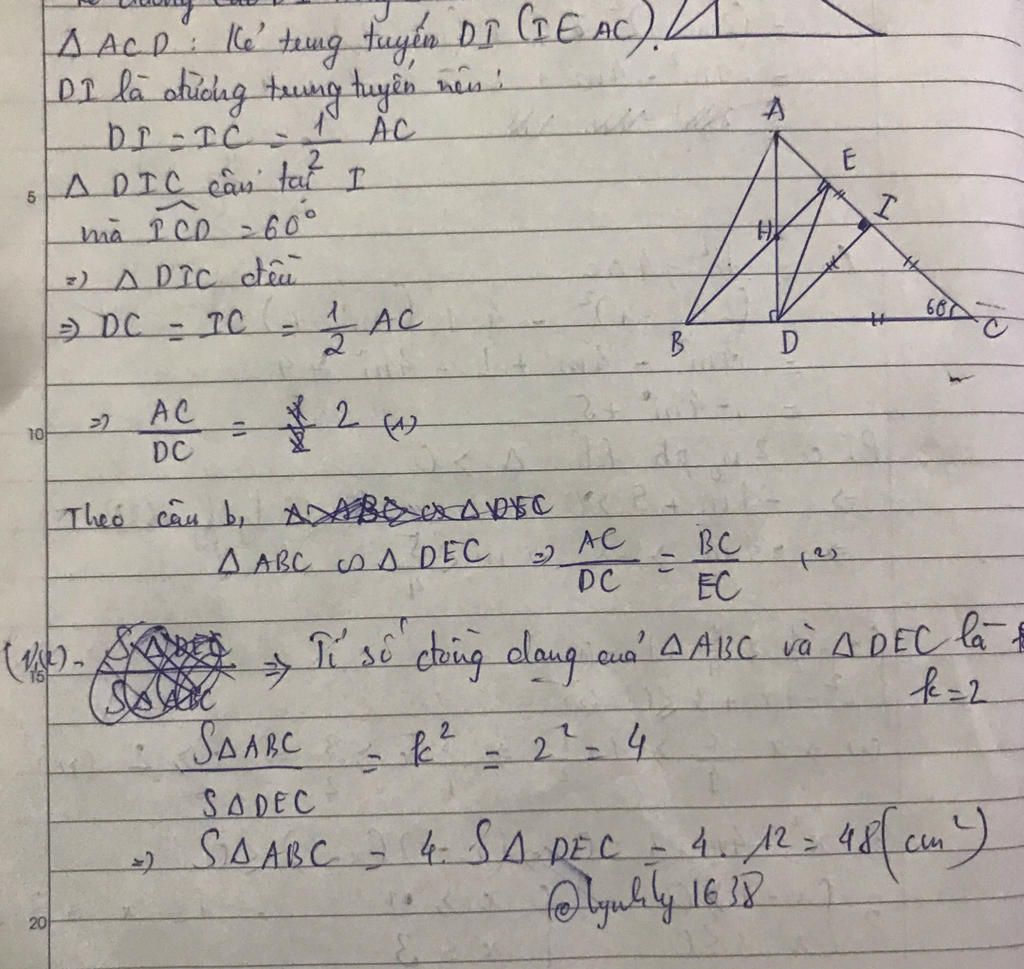 Δ ACD : Kẻ trung tuyến DI (I ∈ AC).
DI là đường trung tuyến nên :
DI = IC = 1/2 AC
Δ DIC cân tại I
mà ICD = 60°
=> Δ DIC đều
=> DC = IC = 1/2 AC
=> AC/DC = 2 (1)
Theo câu b,
Δ ABC ∽ Δ DEC => AC/DC = BC/EC (2)
=> Tỉ số đồng dạng của Δ ABC và Δ DEC là
k = 2
SΔABC/SΔDEC = k² = 2² = 4
=> SΔABC = 4. SΔ DEC = 4. 12 = 48 (cm²)
A
E
I
H
60°
B
D
C
5
10
15
20